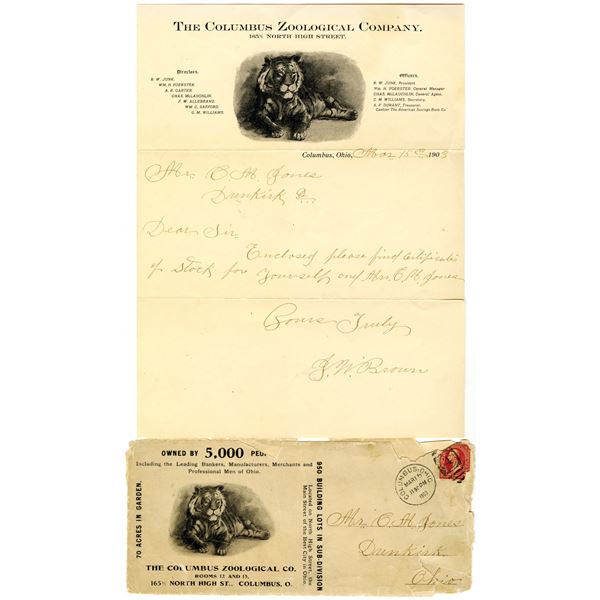 THE COLUMBUS ZOOLOGICAL COMPANY.
165½ NORTH HIGH STREET.
Directors.
B. W. JUNK,
WM. H. FOERSTER,
A. R. CARTER,
CHAS. McLAUGHLIN,
F. W. ALLEBRAND,
WM. C. SAFFORD,
C. M. WILLIAMS.
Officers.
B. W. JUNK, President.
Wm. H. FOERSTER, General Manager
CHAS. McLAUGHLIN, General Agent.
C. M. WILLIAMS, Secretary.
S. F. DURANT, Treasurer.
Cashier The American Savings Bank Co.
Columbus, Ohio, Mar 15 1903
Mr. C. M. Jones
Dunkirk O.
Dear Sir,
Enclosed please find certificates
of Stock for Yourself and Mrs. C. M. Jones
Yours Truly
J. W. Brown
OWNED BY 5,000 PEO
Including the Leading Bankers, Manufacturers, Merchants and
Professional Men of Ohio.
70 ACRES IN GARDEN.
950 BUILDING LOTS IN SUB-DIVISION
Located on North High Street, the
Main Street of the Best City in Ohio.
THE COLUMBUS ZOOLOGICAL CO.
ROOMS 12 AND 13,
165½ NORTH HIGH ST., COLUMBUS, O.
COLUMBUS, OHIO
MAR 15
1903
Mr. C. M. Jones
Dunkirk
Ohio